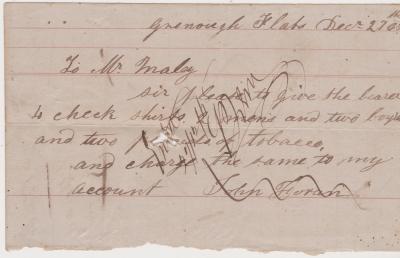 Grenough Flats Dec 27th
To Mr Maley
Sir please to give the bearer
4 check shirts, 2 mens and two boys
and two of tobacco,
and charge the same to my
account John Horan